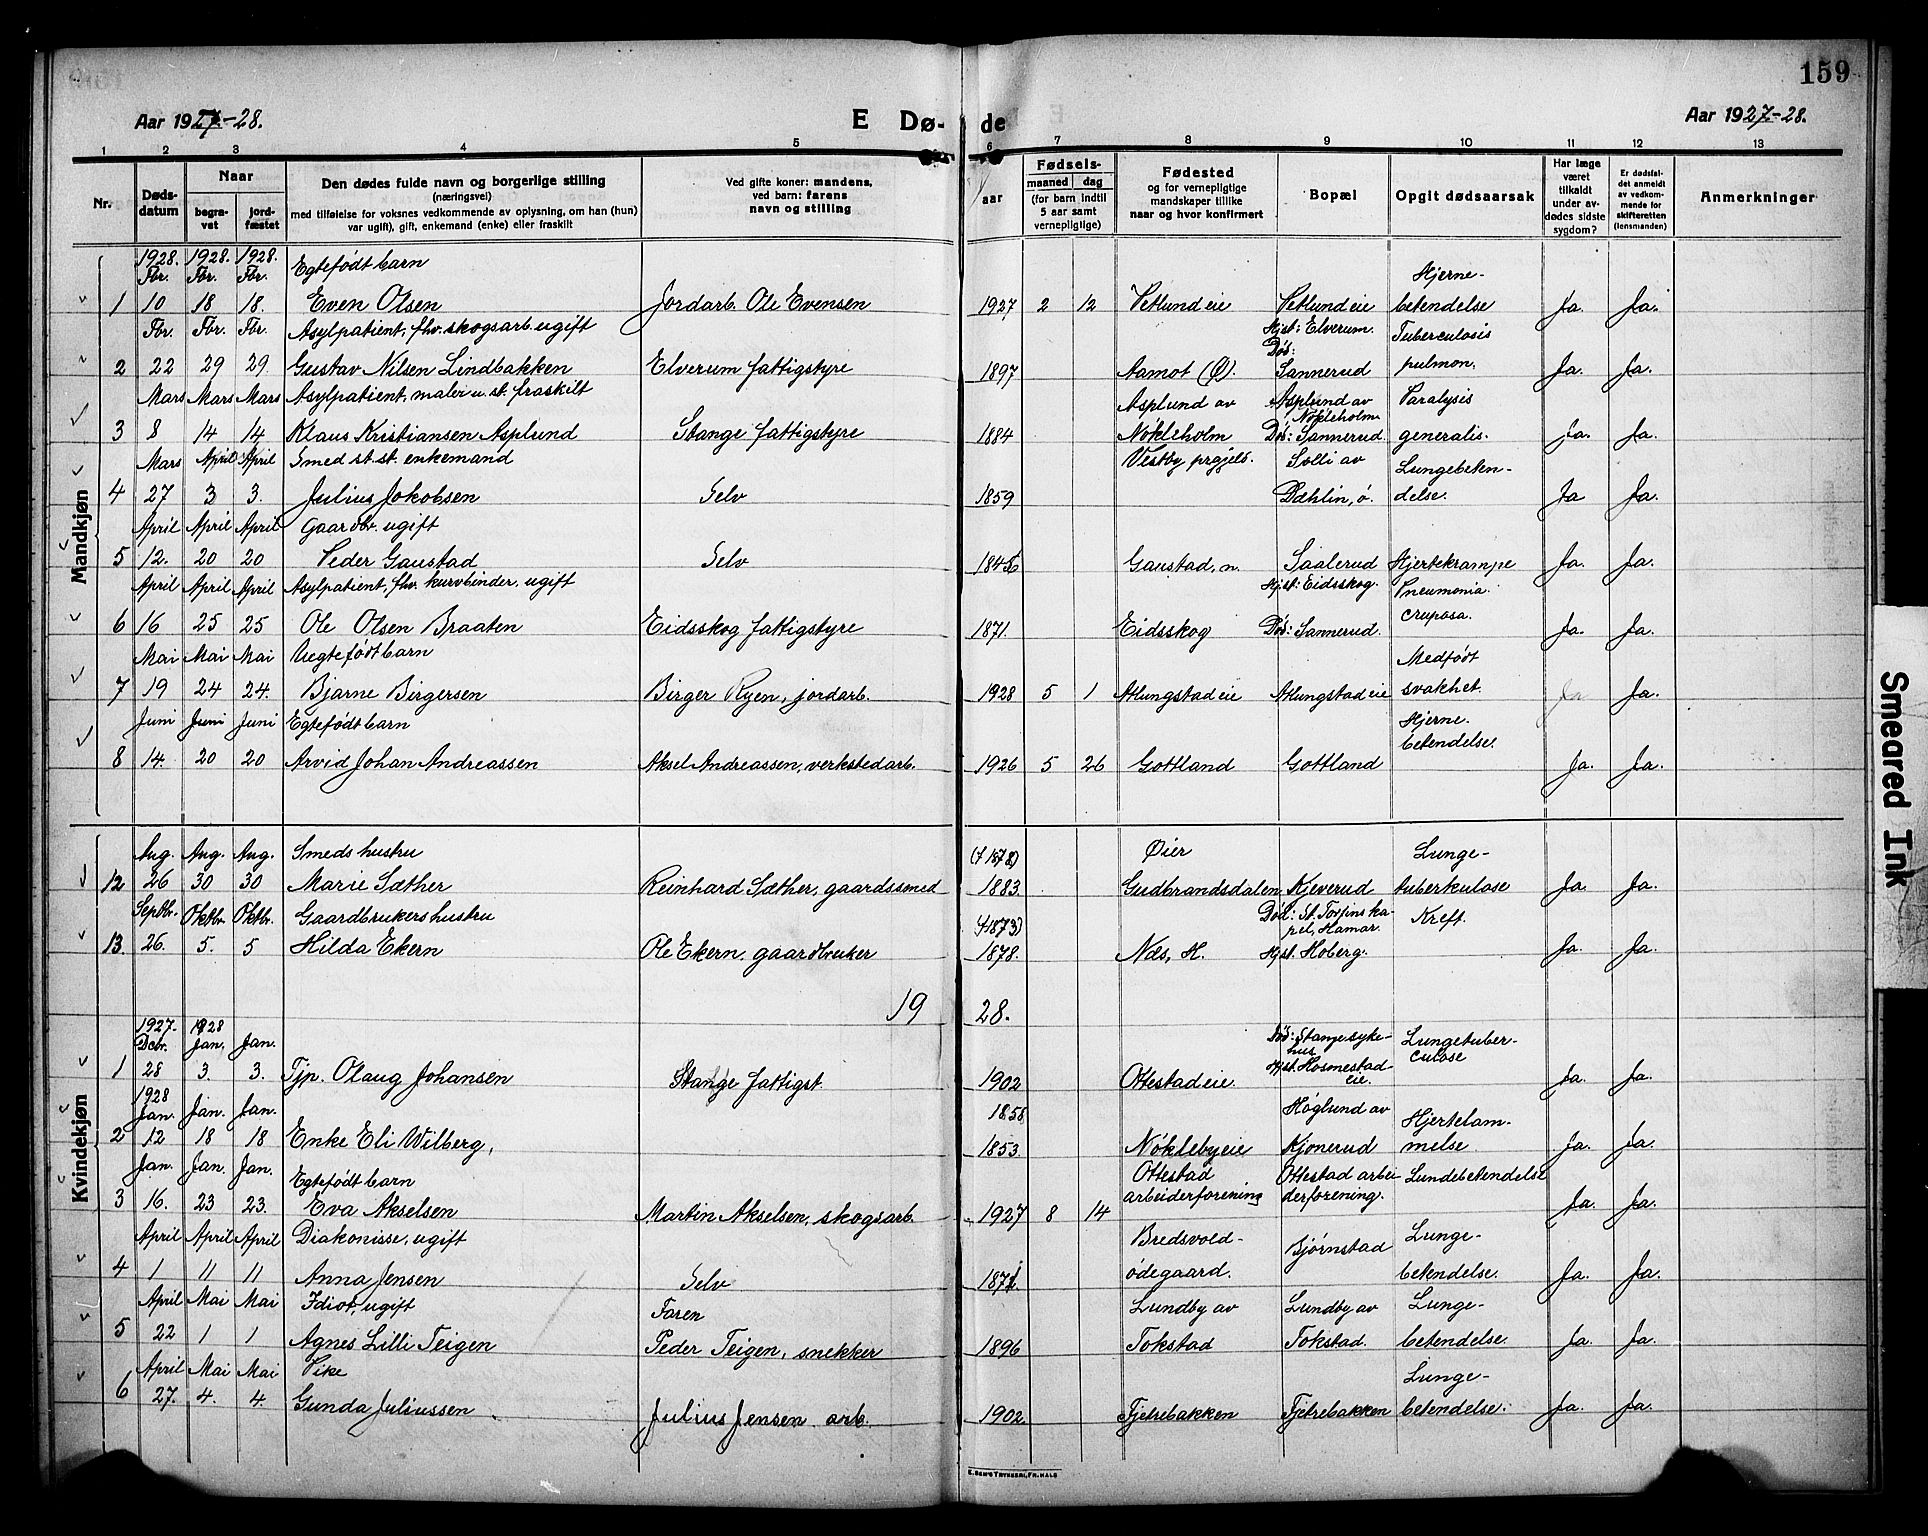 159
Aar 1927-28.
E Dø- de
Aar 1927-28.
1 2 3 4 5 6 7 8 9 10 11 12 13
Nr.
Døds-
datum
Naar
begra-
vet
jord-
fæstet
Den dødes fulde navn og borgerlige stilling
(næringsvei)
med tilføielse for voksnes vedkommende av oplysning, om han (hun)
var ugift), gift, enkemand (enke) eller fraskilt
Ved gifte koner: mandens,
ved barn: farens
navn og stilling
Fødsels-
aar
maaned dag
(for barn indtil
5 aar samt
vernepligtige)
Fødested
og for vernepligtige
mandskaper tillike
naar og hvor konfirmert
Bopæl
Opgit dødsaarsak
Har læge
været
tilkaldt
under av-
dødes sidste
sygdom?
Er dødsfal-
det anmeldt
av vedkom-
mende for
skifteretten
(lensmanden)
Anmerkninger
Mandkjøn
1928. 1928. 1928.
Fbr. Fbr. Fbr. Egtefødt barn Hjerne-
1 10 18 18. Even Olsen Jordarb. Ole Evensen 1927 2 12 Vetlund eie Vetlund eie betendelse Ja. Ja.
Fbr. Fbr. Fbr. Asylpatient, fhv. skogsarb. ugift Hjst: Elverum. Tuberculosis
Død:
2 22 29 29. Gustav Nilsen Lindbakken Elverum fattigstyre 1897 Aamot (Ø). Sannerud pulmon. Ja. Ja.
Mars Mars Mars Asylpatient, maler u. st. fraskilt Asplund av Asplund av Paralysis
Nökleholm
3 8 14 14 Klaus Kristiansen Asplund Stange fattigstyre 1884 Nökleholm Død: Sannerud. generalis. Ja. Ja.
Mars April April Smed st. st. enkemand Vestby prgjeld. Solli av Lungebeten-
4 27 3 3. Julius Jokobsen Selv 1859 Dæhlin, ö. delse. Ja Ja.
April April April Gaardbr. ugift
5 12. 20 20 Peder Gaustad Selv 1845 Gaustad, n. Saalerud Hjertekrampe Ja. Ja.
April April April Asylpatient, fhv. kurvbinder, ugift Hjst: Eidsskog. Pneumonia
6 16 25 25 Ole Olsen Braaten Eidsskog fattigstyre 1871. Eidsskog Død: Sannerud. cruposa. Ja. Ja.
Mai Mai Mai Uegtefødt barn Medfødt
7 19 24 24. Bjarne Birgersen Birger Ryen, jordarb. 1928 5 1 Atlungstad eie Atlungstad eie svakhet. Ja Ja.
Juni Juni Juni Egtefødt barn Hjerne.
betendelse.
8 14. 20 20 Arvid Johan Andreassen Aksel Andreassen, verkstedarb. 1926 5 26 Gottland Gottland Ja. Ja.
Kvindekjøn
Aug. Aug. Aug. Smeds hustru (f 1878) Øier Lunge-
12 26 30 30 Marie Sæther Reinhard Sæther, gaardssmed 1883 Gudbrandsdalen Kjeverud tuberkulose Ja. Ja.
Septbr. Oktbr. Oktbr. Gaardbrukers hustru (f 1873) Død: St. Torfins ka- Kreft.
pel, Hamar.
13. 26. 5. 5 Hilda Ekern Ole Ekern, gaardbruker 1878. Nds, H. Hjst. Hoberg. Ja. Ja.
19 28.
1927. 1928
Decbr. Jan. Jan. Død: Stange syke- Lungetuber-
hus culose
1 28 3. 3. Tjp. Olaug Johansen Stange fattigst. 1902 Ottestad eie. Hjst. Hosmestad Ja. Ja.
eie.
1928
Jan. Jan. Jan. 1858 Höglund av Hjertelam-
2 12 18 18 Enke Eli Wilberg, 1853. Nöklebyeie Kjonerud melse Ja. Ja.
Jan. Jan. Jan. Egtefødt barn Ottestad Ottestad arbei Lundebetendelse
3 16. 23 23. Eva Akselsen Martin Akselsen, skogsarb. 1927 8 14 arbeiderforening derforening. Ja. Ja.
April April April Diakonisse, ugift Bredsvold- Bjørnstad Lunge-
4 1 11 11 Anna Jensen Selv 1871 ödegaard. betendelse. Ja. Ja.
April Mai Mai Idiot, ugift Faren Lundby av Lundby av Lunge-
5 22 1 1 Agnes Lilli Teigen Peder Teigen, snekker 1896 Tokstad Tokstad. betendelse. Ja. Ja.
April Mai Mai Pike Lunge-
6 27. 4. 4. Gunda Juliussen Julius Jensen arb. 1902 Fjetrebakken Fjetrebakken betendelse. Ja. Ja.
E. SEM'S TRYKKERI, FR.HALD
Smeared Ink